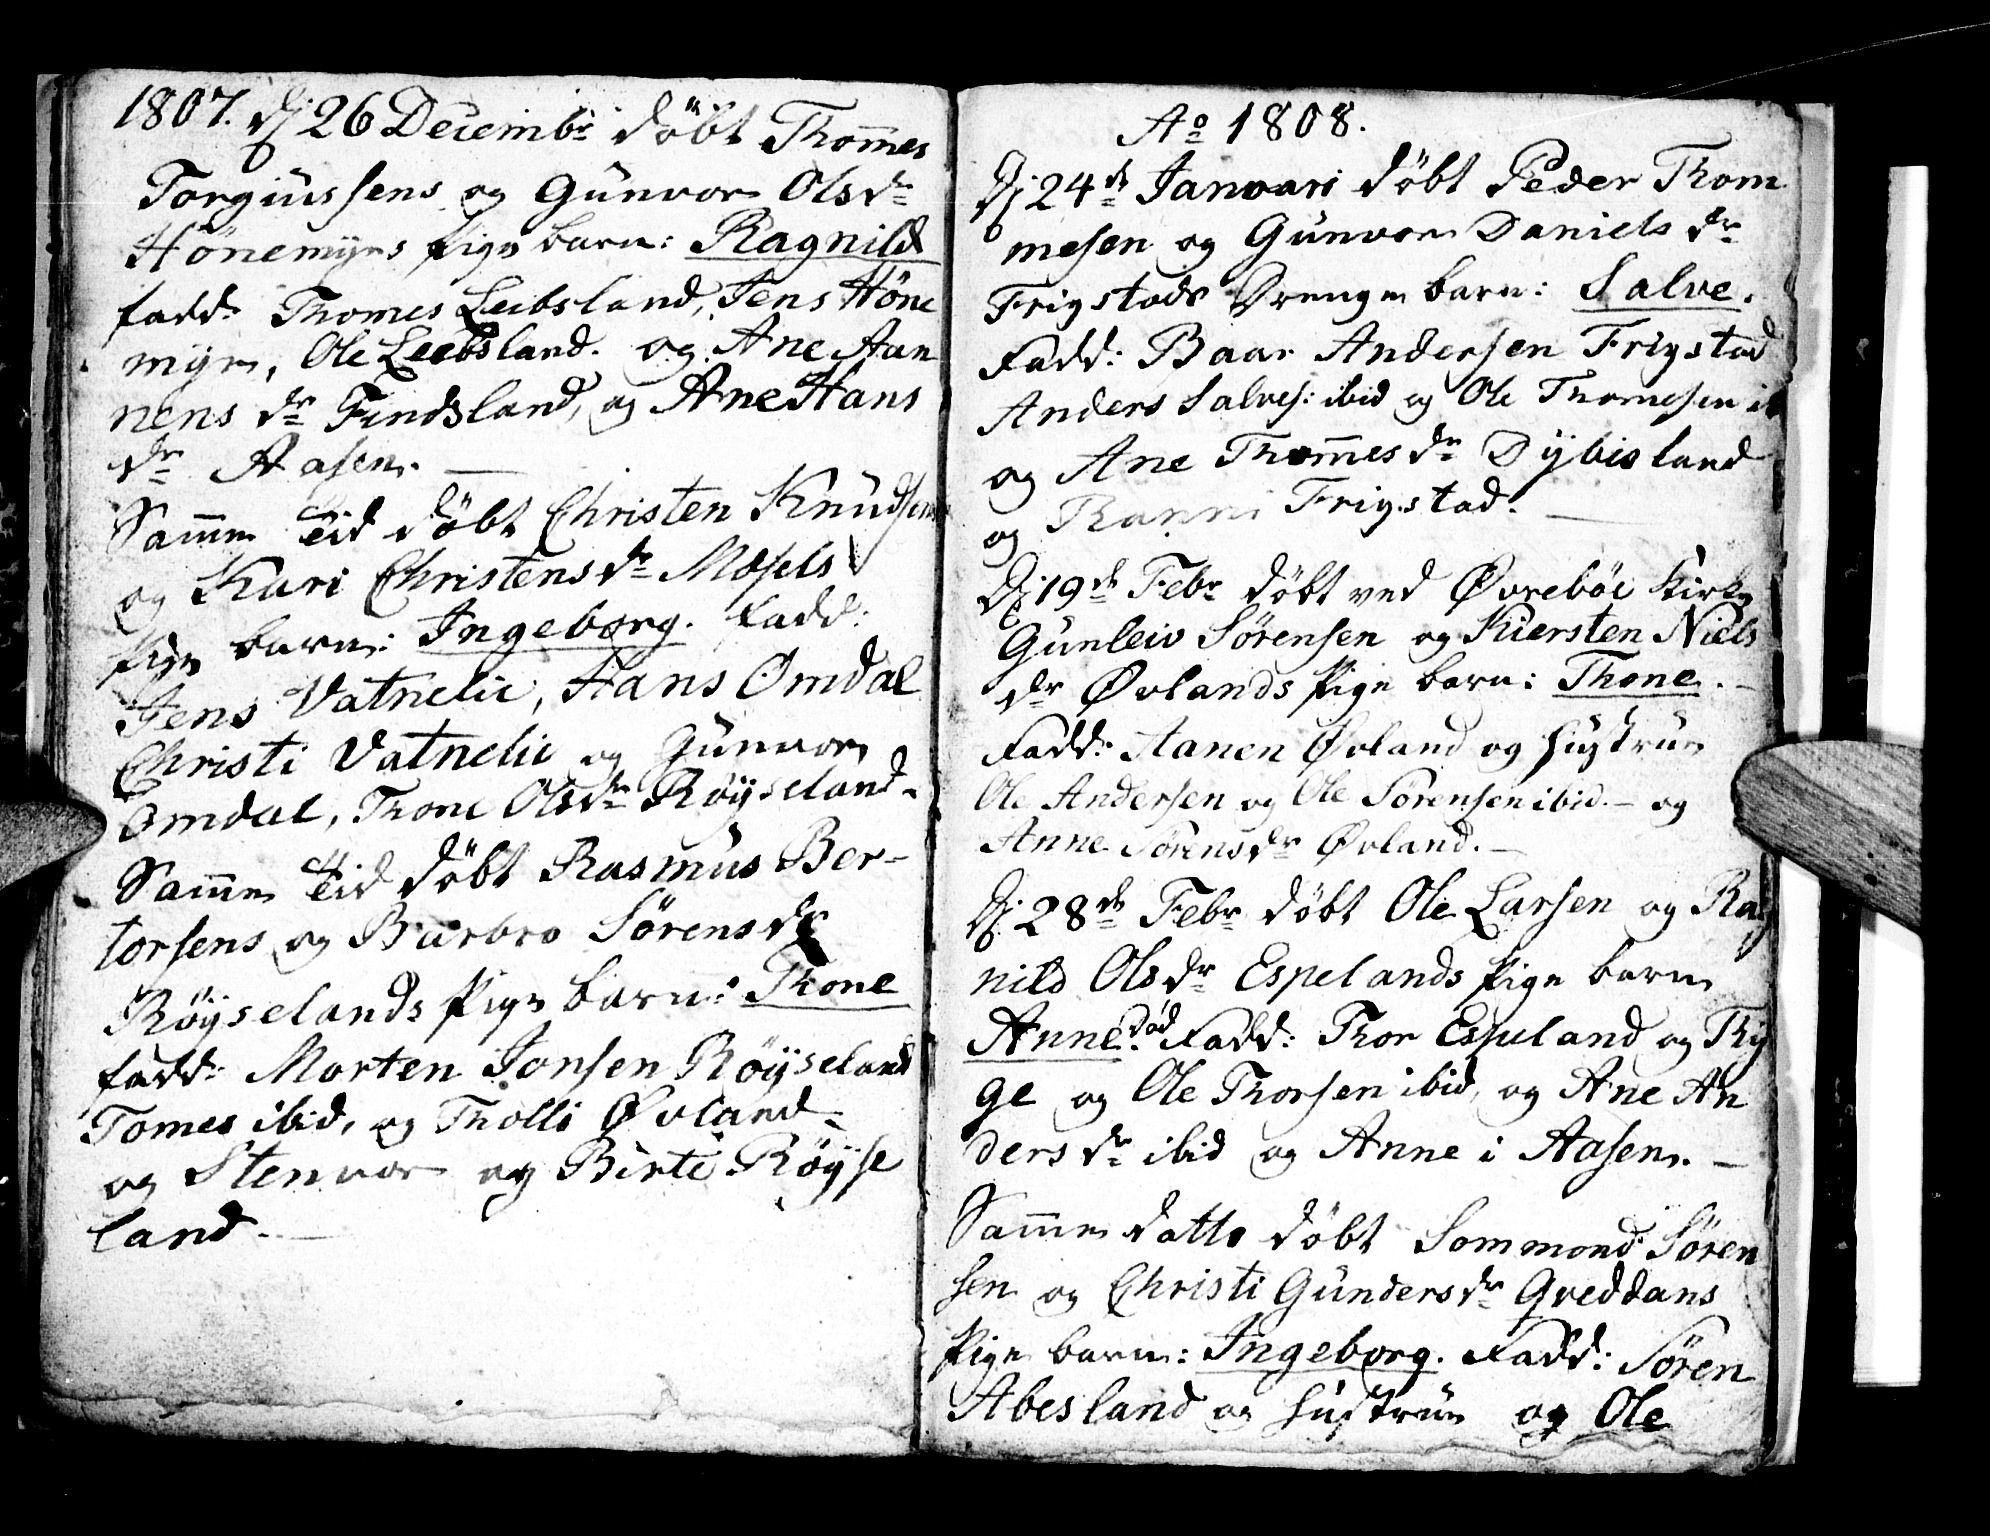 1807. dj 26 Decembr döbt Thom̄es
Torgiussens og Gunvor Olsdr
Hönemyrs Pige barn: Ragnild
fadd: Thomes Leibsland, Jens Höne
myr, Ole Leebsland. og Ane Aan
nens dr Findsland, og Ane Hans
dr Aasen. —
Sam̄e Tid döbt Christen Knudsens
og Kari Christensdr Mosels
Pige barn: Ingeborg. fadd:
Jens Vatnelie, Hans Omdal
Christi Vatnelie og Gunvor
Omdal, Thone Olsdr Röÿseland.
Sam̄e Tid döbt Rasmus Ber-
torsens og Barbro Sörensdr
Röÿselands Pige barn: Thone
fadd: Morten Jonsen Röÿseland
Tomes ibid, og Tholli Øvland
og Stenvor og Birte Röÿse
land. —
Ao 1808.
Dj 24de Janvari döbt Peder Thom
mesen og Gunvor Daniels dr
Frigstads Drenge barn: Salve.
Fadd: Baar Andersen Frigstad
Anders Salves: ibid og Ole Thomesen ib
og Ane Thom̄esdr Dÿbisland
og Ranni Frigstad. —
Dj 19de Febr döbt ved Øvreböe Kirke
Gunleiv Sörensen og Kiersten Niels
dr Øvlands Pige barn: Thone. —
Fadd: Aanen Øvland og hustrue
Ole Andersen og Ole Sörensen ibid. — og
Anne Sörensdr Øvland. —
Dj 28de Febr döbt Ole Larsen og Rag
nild Olsdr Espelands Pige barn
Anne. död Fadd: Thor Espeland og Thy
ge og Ole Thorsen ibid, og Ane An
ders dr ibid og Anne i Aasen. —
Sam̄e datto döbt Sommond Sören
sen og Christi Gundersdr Greddans
Pige barn: Ingeborg. Fadd: Sören
Abesland og hustrue og Ole